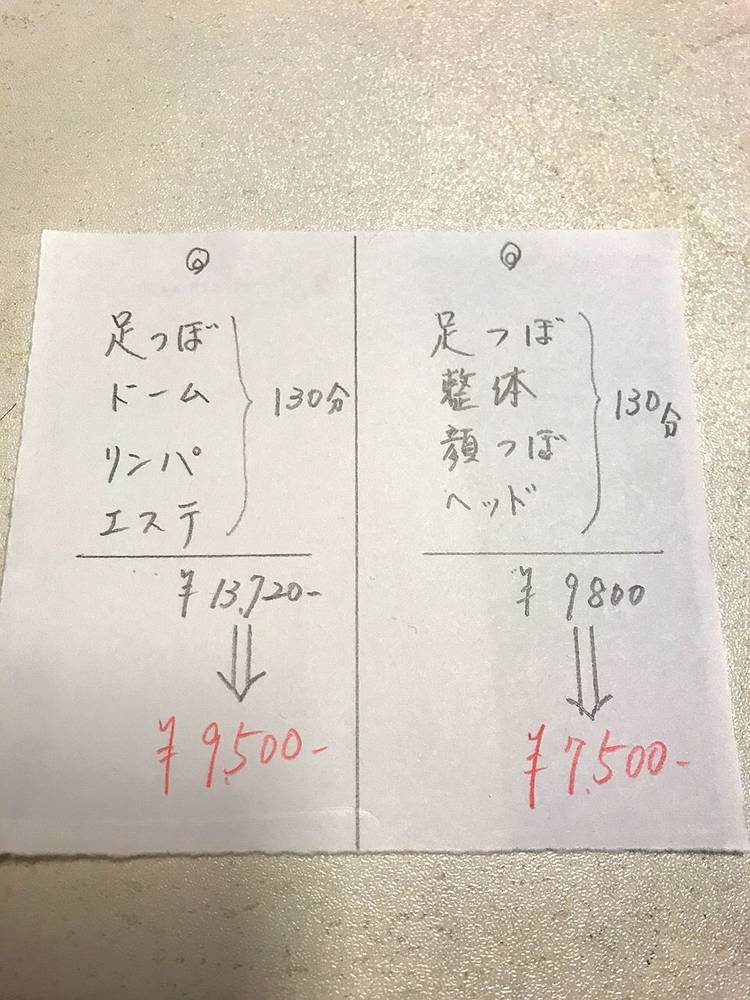 ◎
足つぼ
ドーム
リンパ
エステ
130分
¥13,720-
¥9,500-
◎
足つぼ
整体
顔つぼ
ヘッド
130分
¥9800
¥7,500-